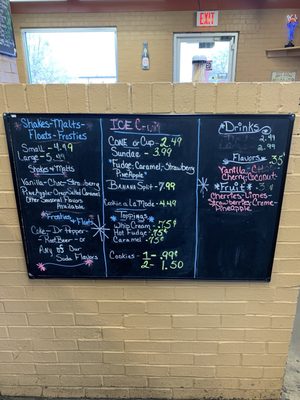 EXIT
Shakes-Malts-
Floats-Frosties
Small - 4.49
Large - 5.
Shakes & Malts
Vanilla - Choc - Strawberry
Pineapple - Caramel
Other Seasonal Flavors
Available
Frosties & Floats
Coke - Dr Pepper
- Root Beer - or
Any of Our
Soda Flavors
ICE
CONE or CUP - 2.49
Sundae - 3.99
Fudge - Caramel - Strawberry
Pineapple
BANANA Split - 7.99
Cookie a La Mode - 4.49
Toppings
Whip Cream - .75¢
Hot Fudge - .75¢
Caramel - .75¢
Cookies - 1 - .99¢
2 - 1.50
Drinks
2.49
2.99
Flavors - 35¢
Vanilla
Cherry - Coconut
Fruit
Cherries - Limes -
Strawberries - Creme -
Pineapple